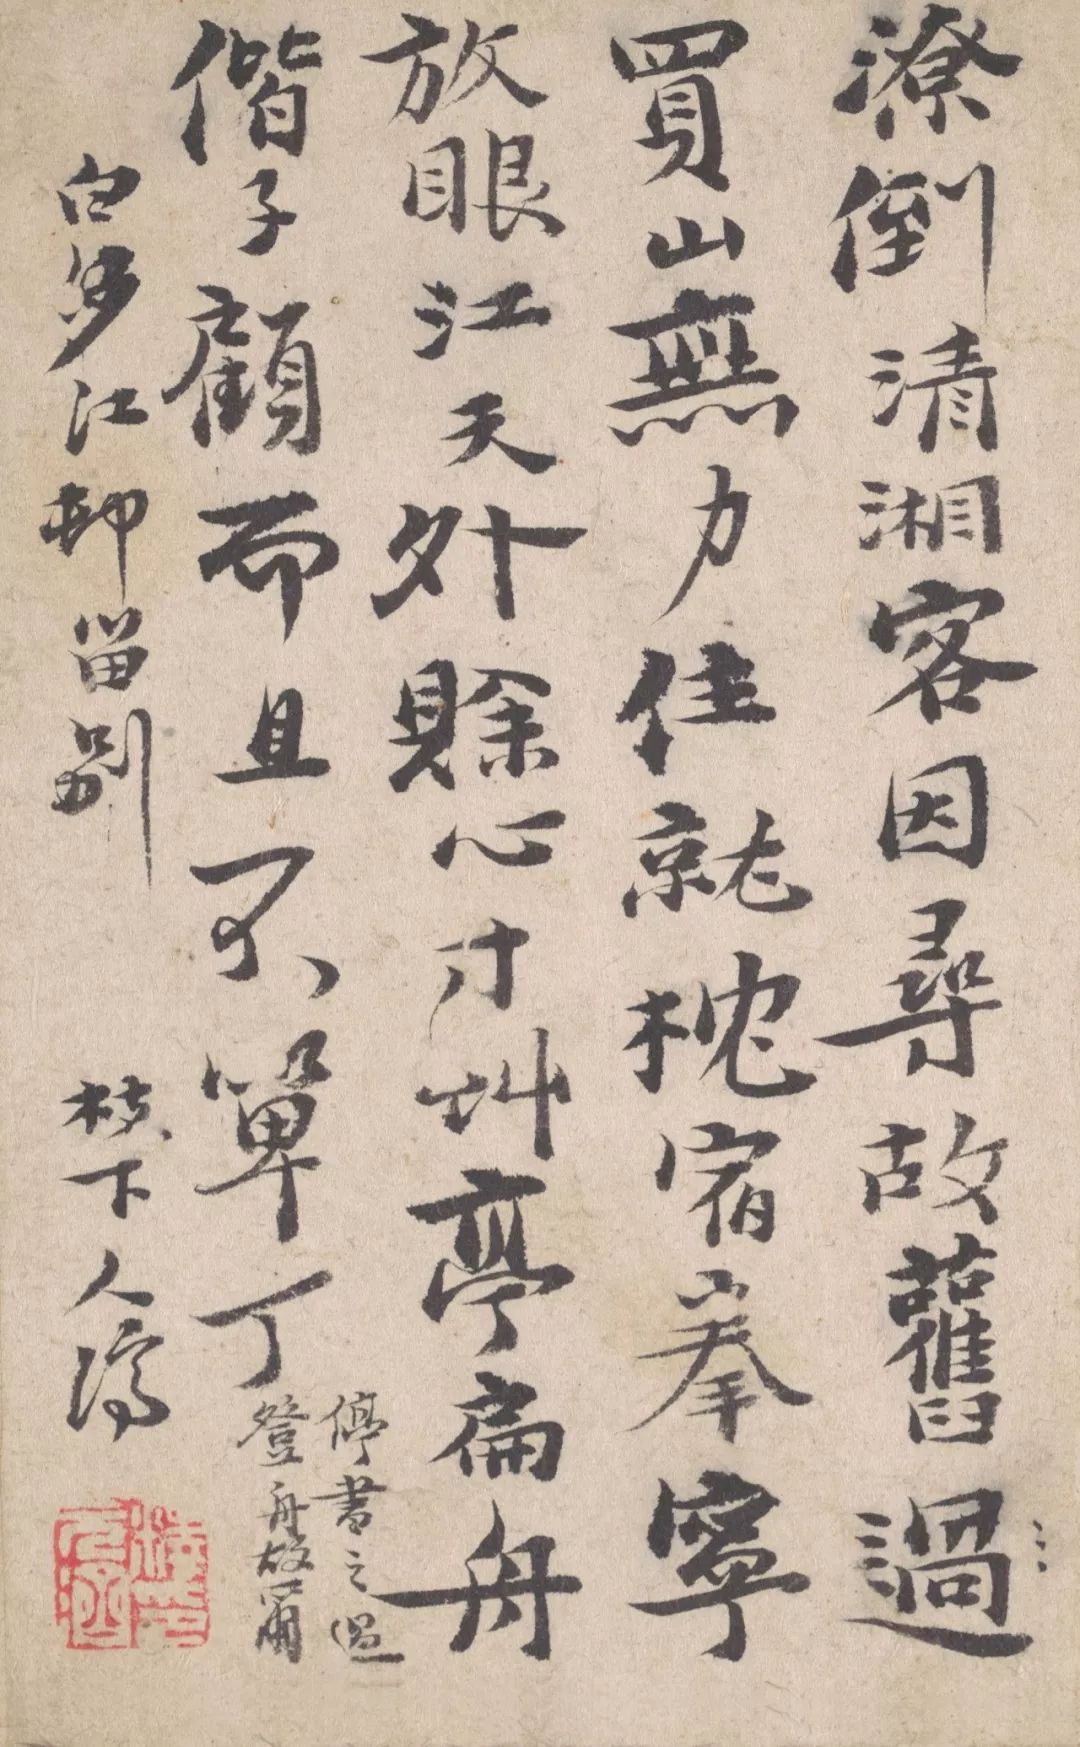 潦倒清湘客因尋故舊過
買山無力住就枕宿拳寧
放眼江天外賖心寸艸亭扁舟
偕子顧而且不單丁
停書之過
登舟故爾
白沙江邨留別
枝下人濟